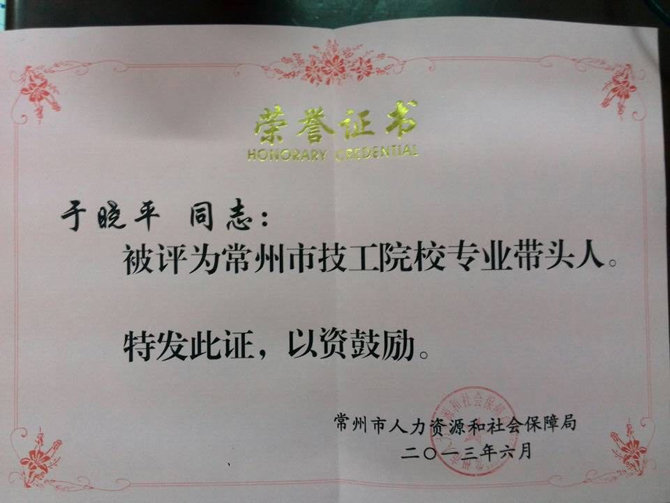 荣誉证书
HONORARY CREDENTIAL
于晓平 同志：
被评为常州市技工院校专业带头人。
特发此证，以资鼓励。
常州市人力资源和社会保障局
二〇一三年六月